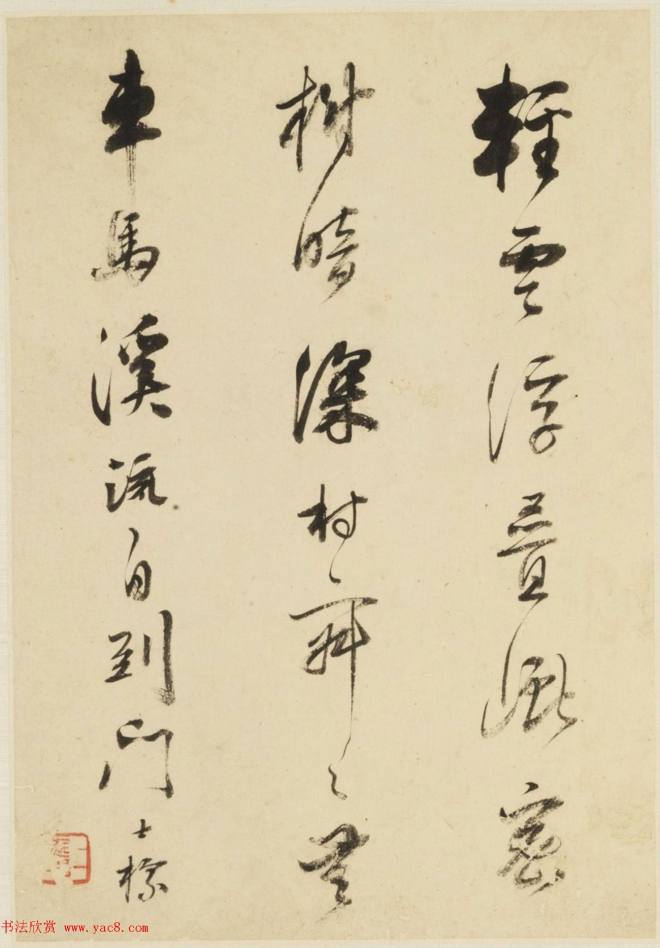 輕雲浮叠密
樹暗深村〻無
車馬溪流自到門
士標
书法欣赏 www.yac8.com